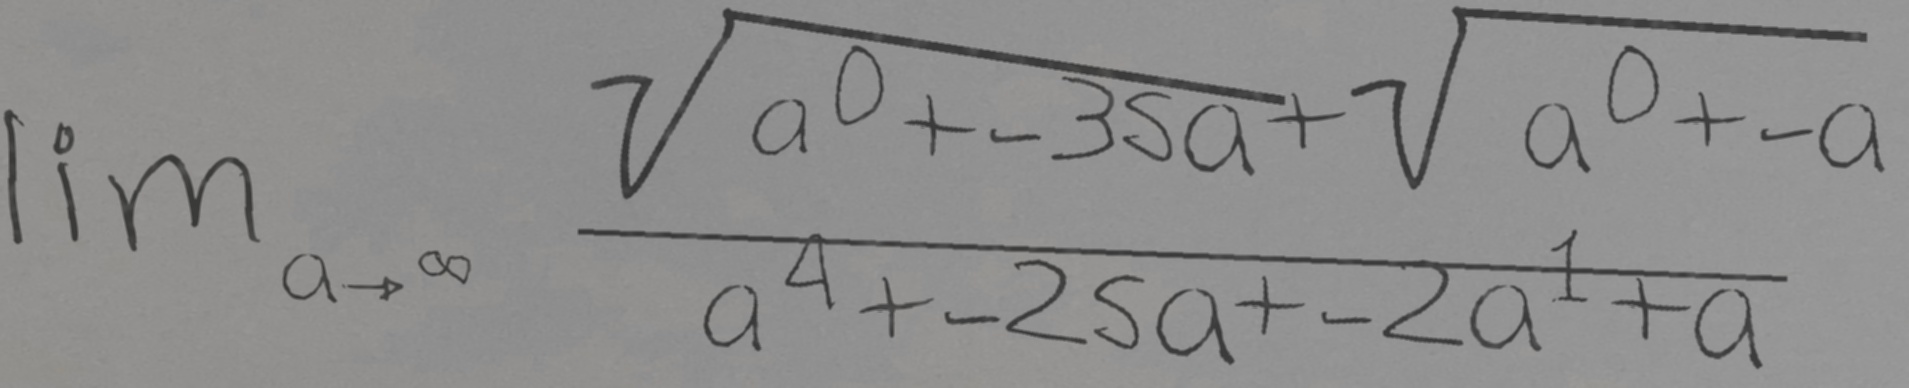 \lim_{a \to \infty} \frac{\sqrt{a^0 + -35a} + \sqrt{a^0 + -a}}{a^4 + -25a + -2a^1 + a}